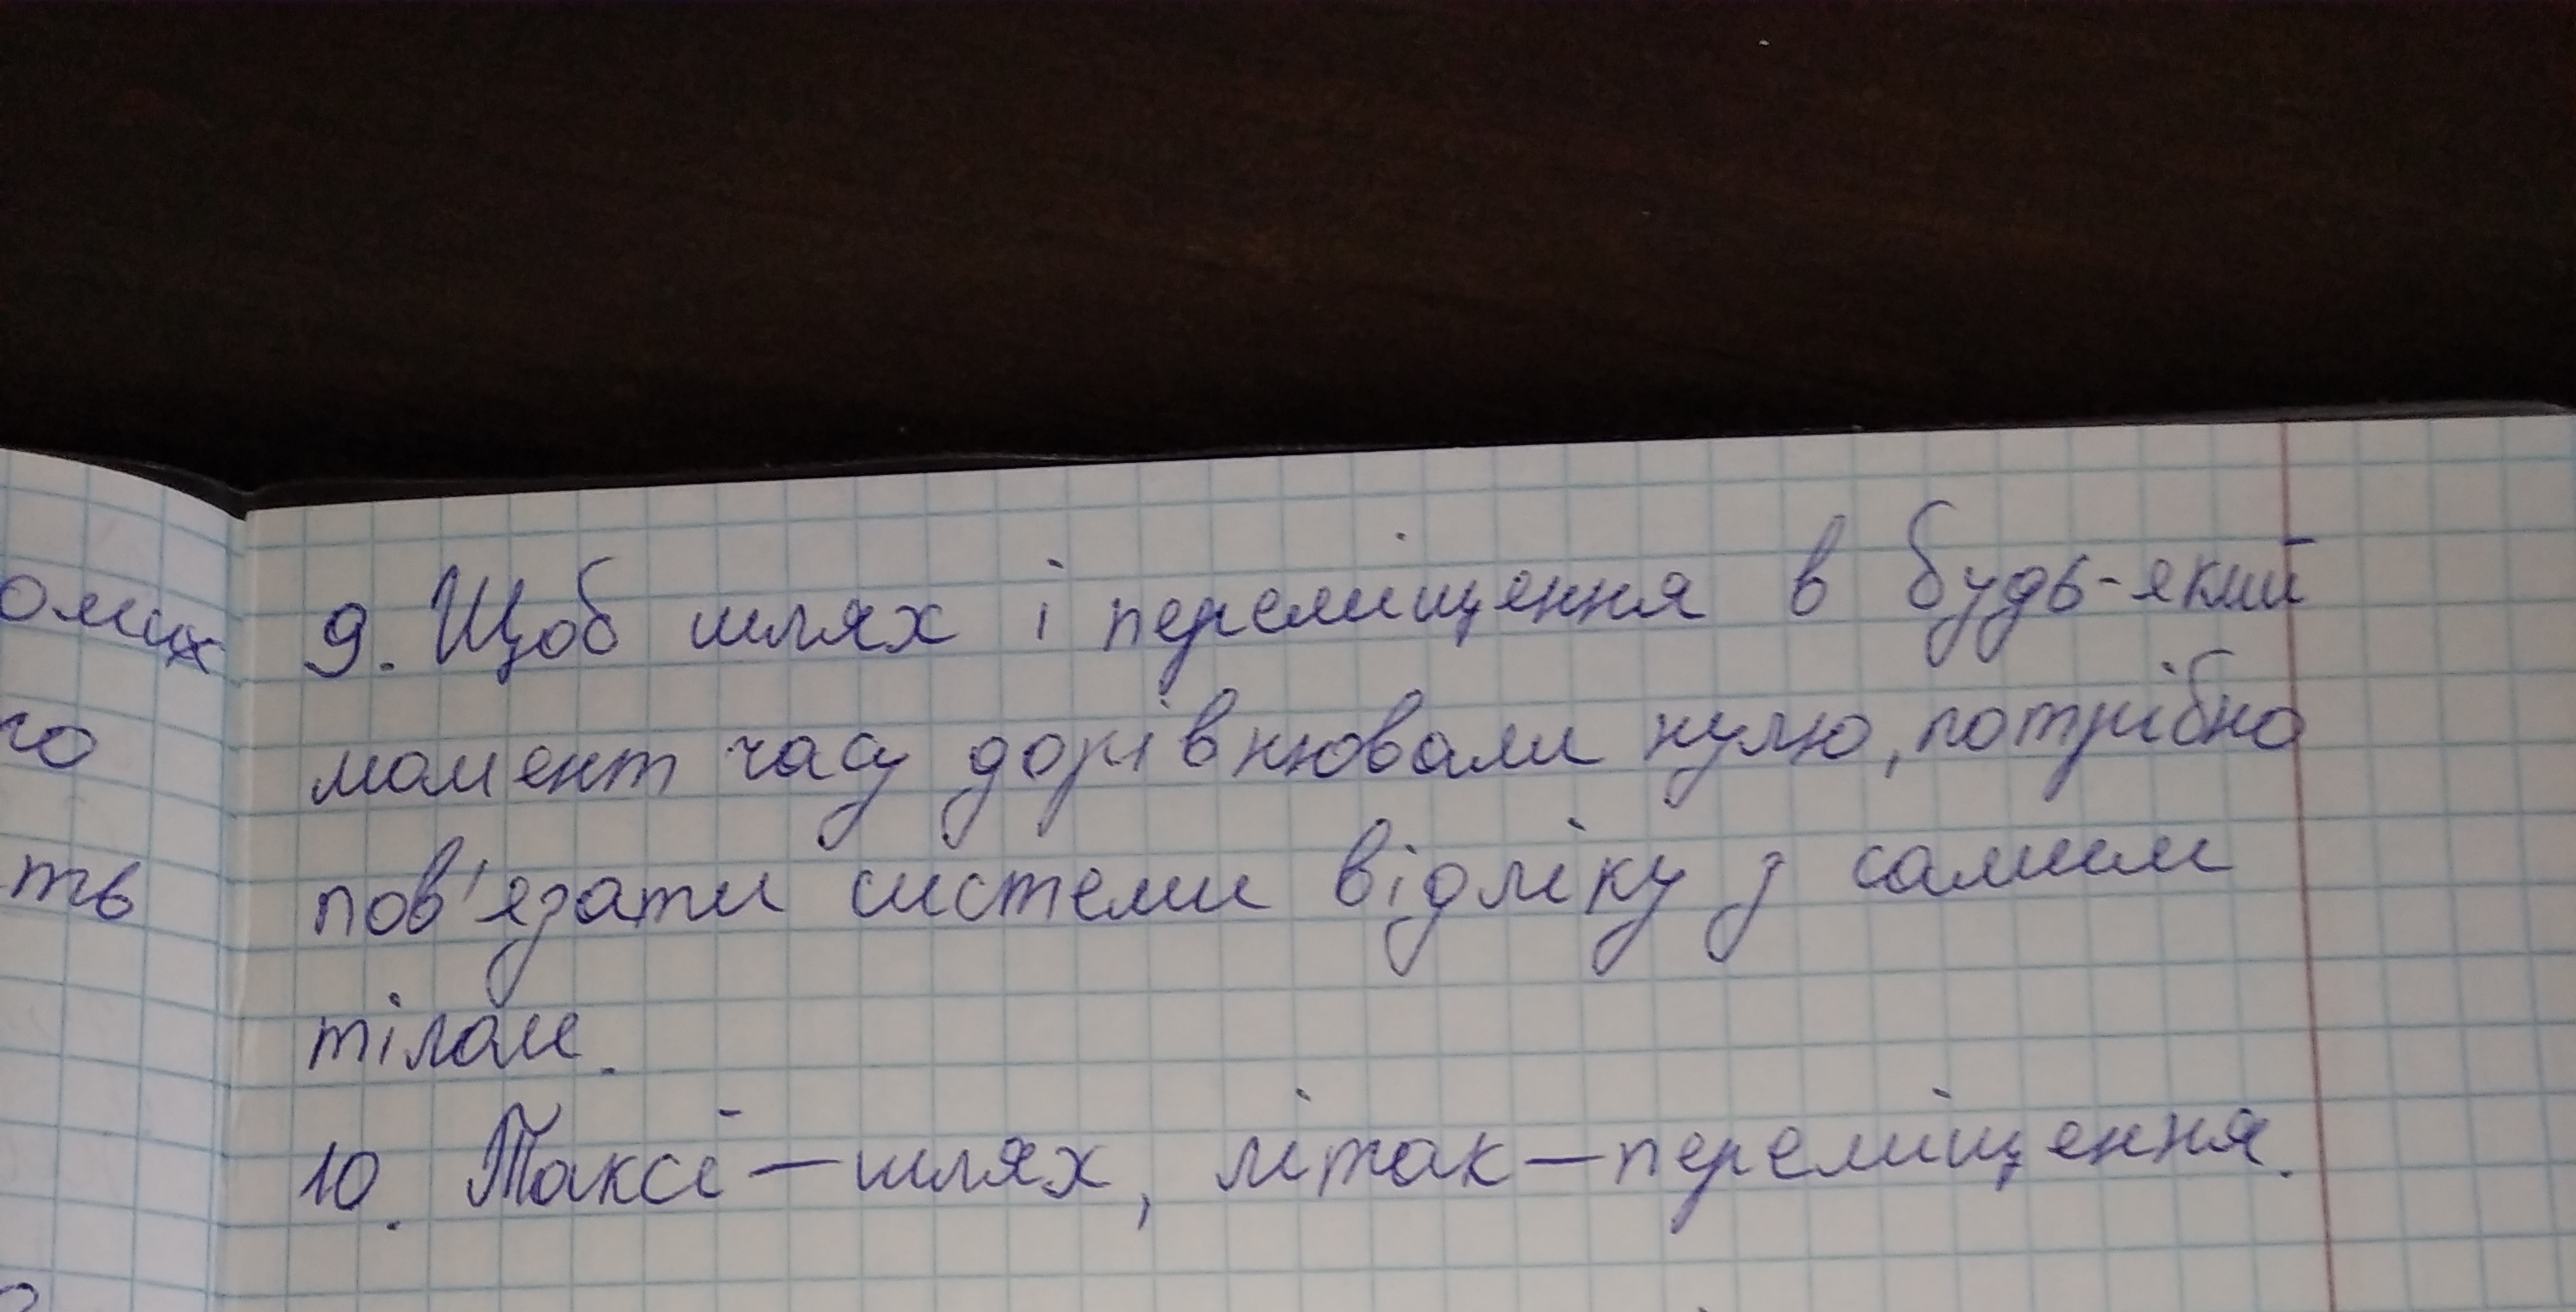 9. Щоб шлях і переміщення в будь-який
момент часу дорівнювали нулю, потрібно
пов'язати системи відліку з самим
тілом.
10. Таксі — шлях, літак — переміщення.
го
ть